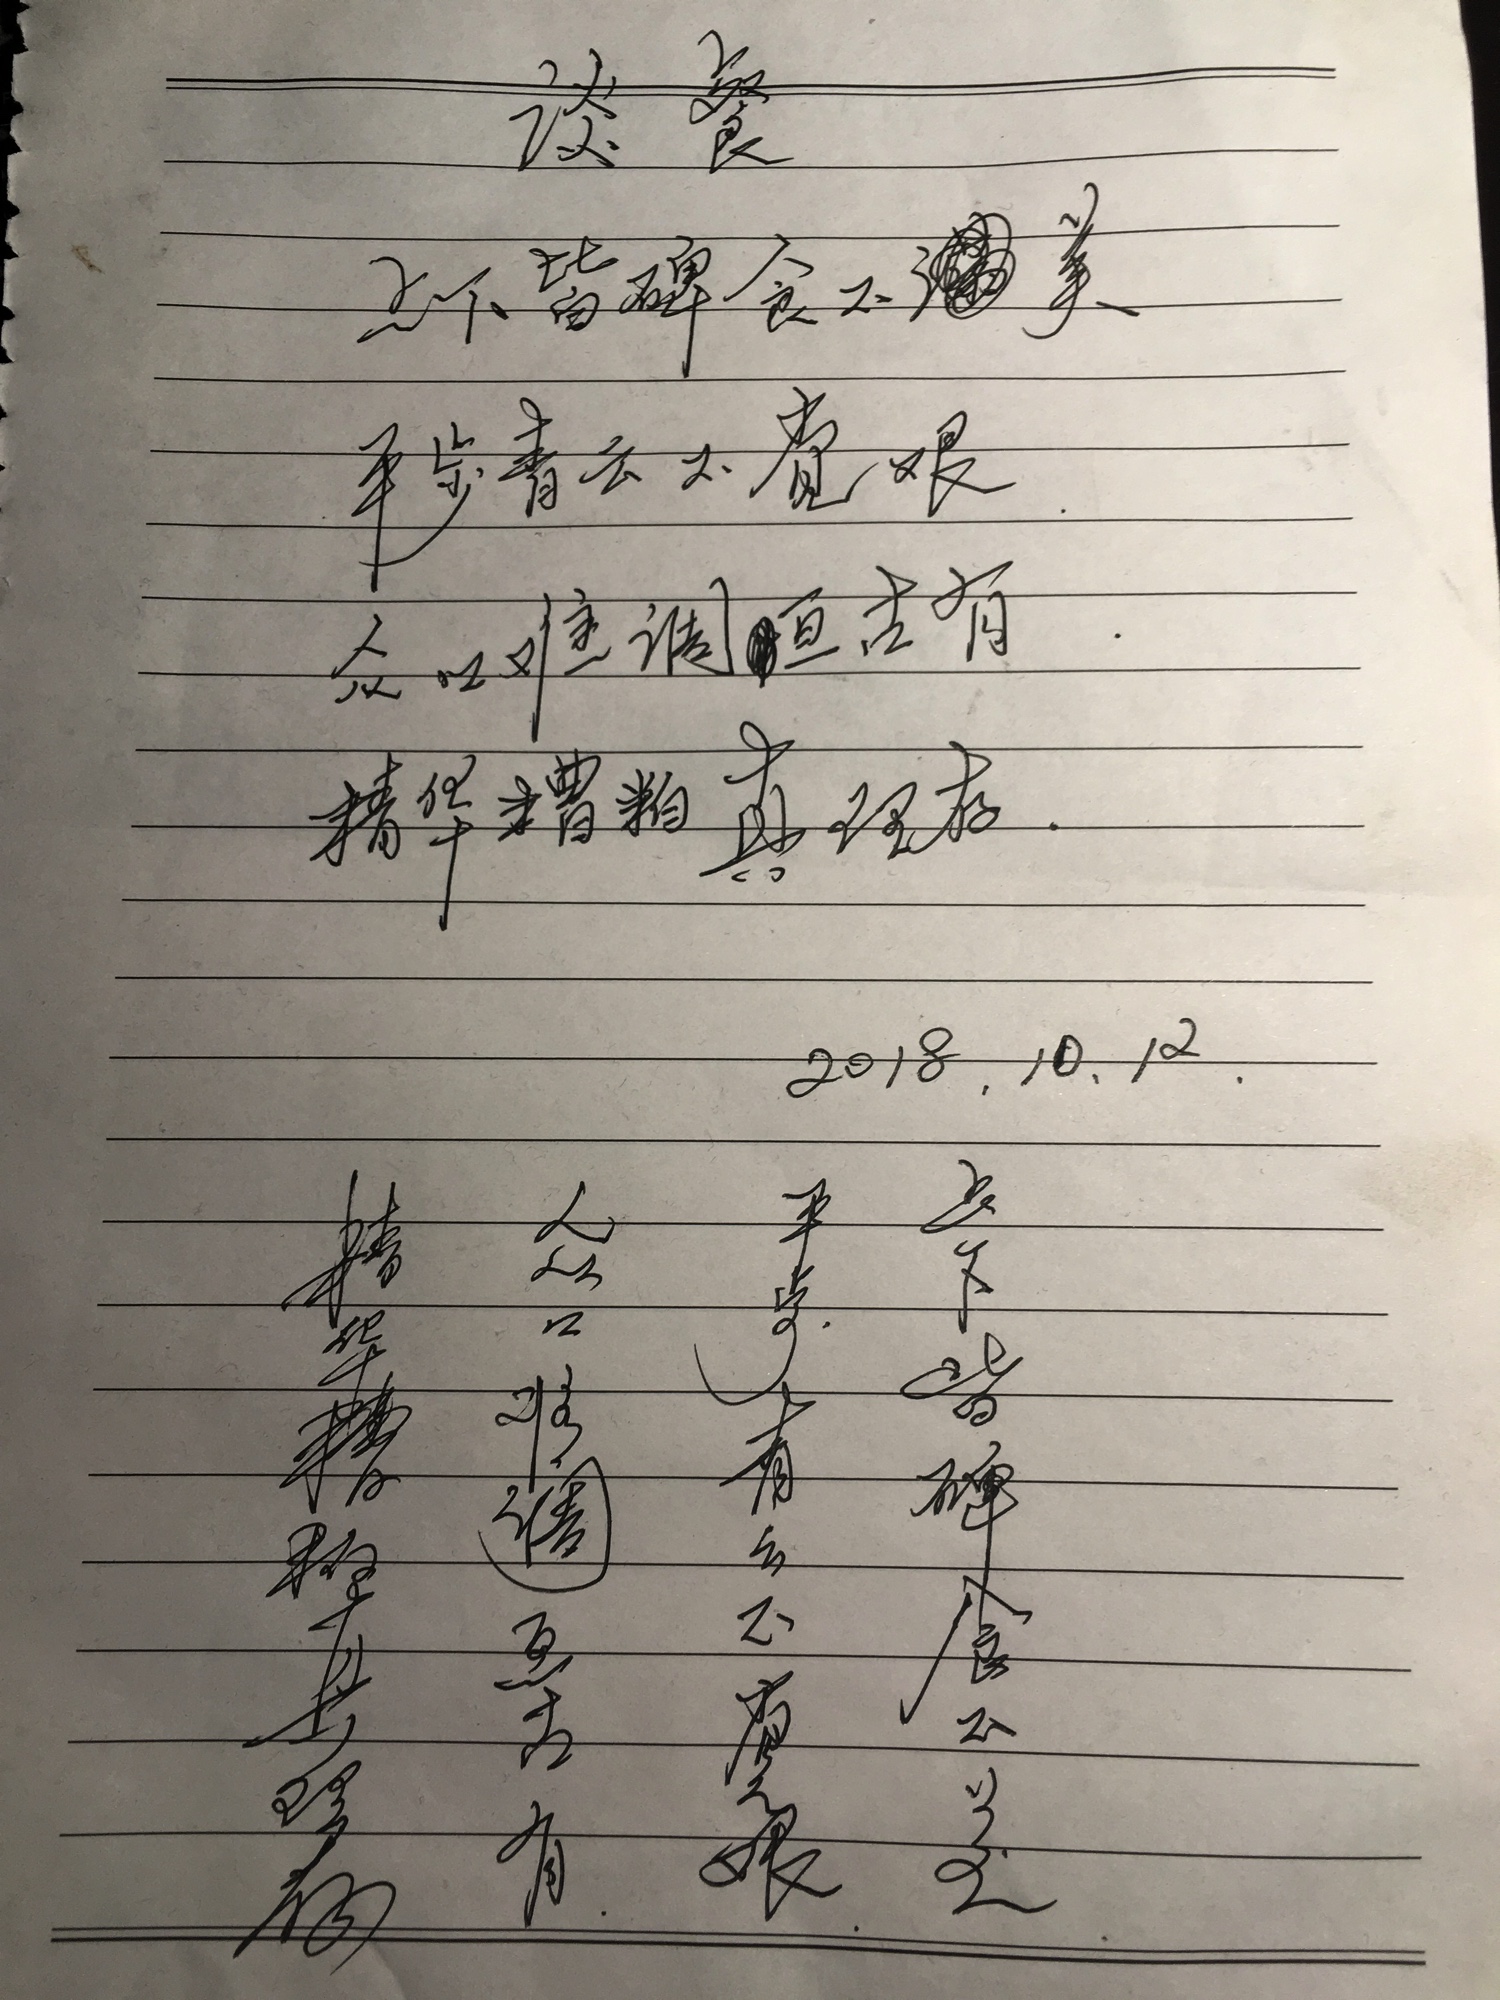 谈餐
天下皆碑食不美
平步青云不觉艰.
众口难调亘古有.
精华糟粕真理存.
2018.10.12.
天下皆碑食不美
平步青云不觉艰.
众口难调亘古有.
精华糟粕真理存